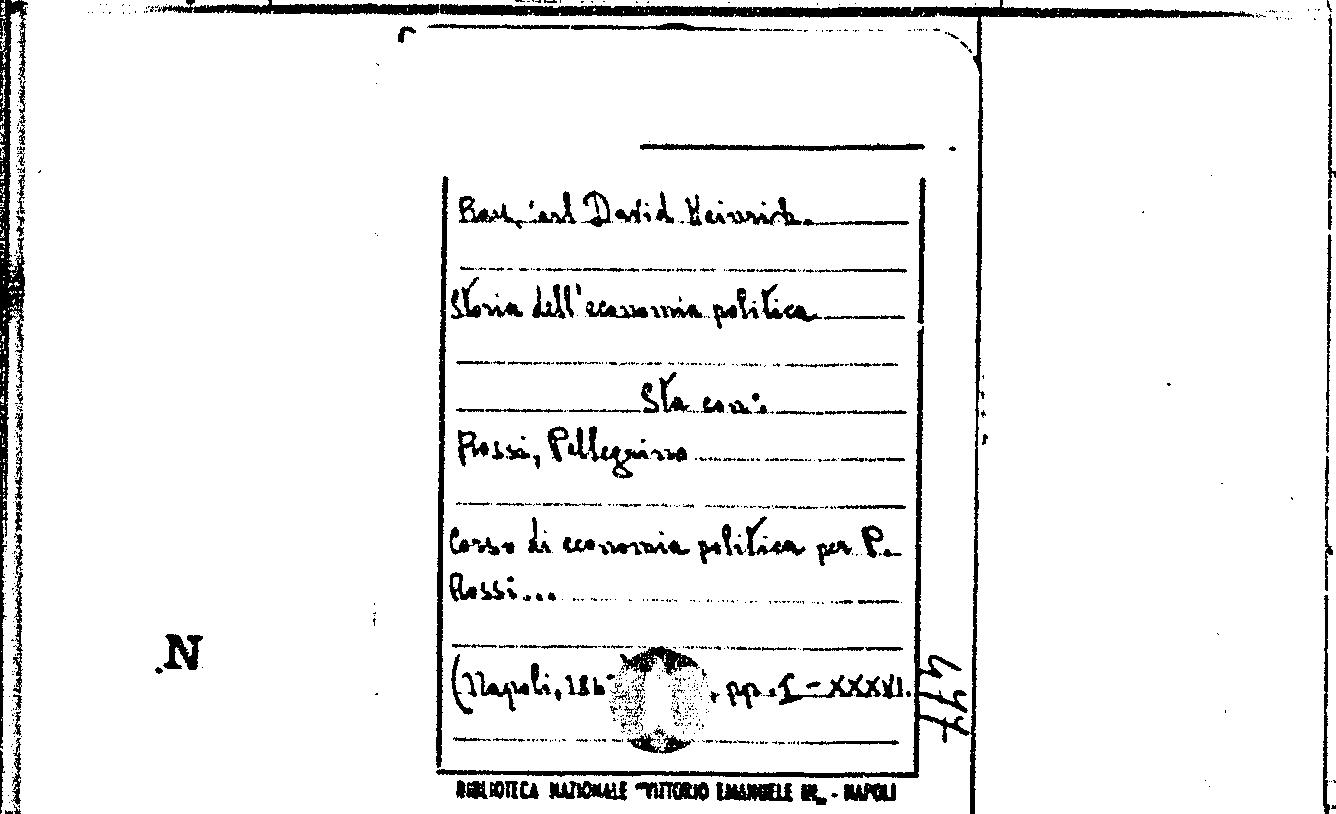 Rau, Carl David Heinrich.
Storia dell'economia politica
Sta con:
Rossi, Pellegrino
Corso di economia politica per P.
Rossi...
(Napoli, pp. I-XXXVI.
N
477
BIBLIOTECA NAZIONALE "VITTORIO EMANUELE III" - NAPOLI